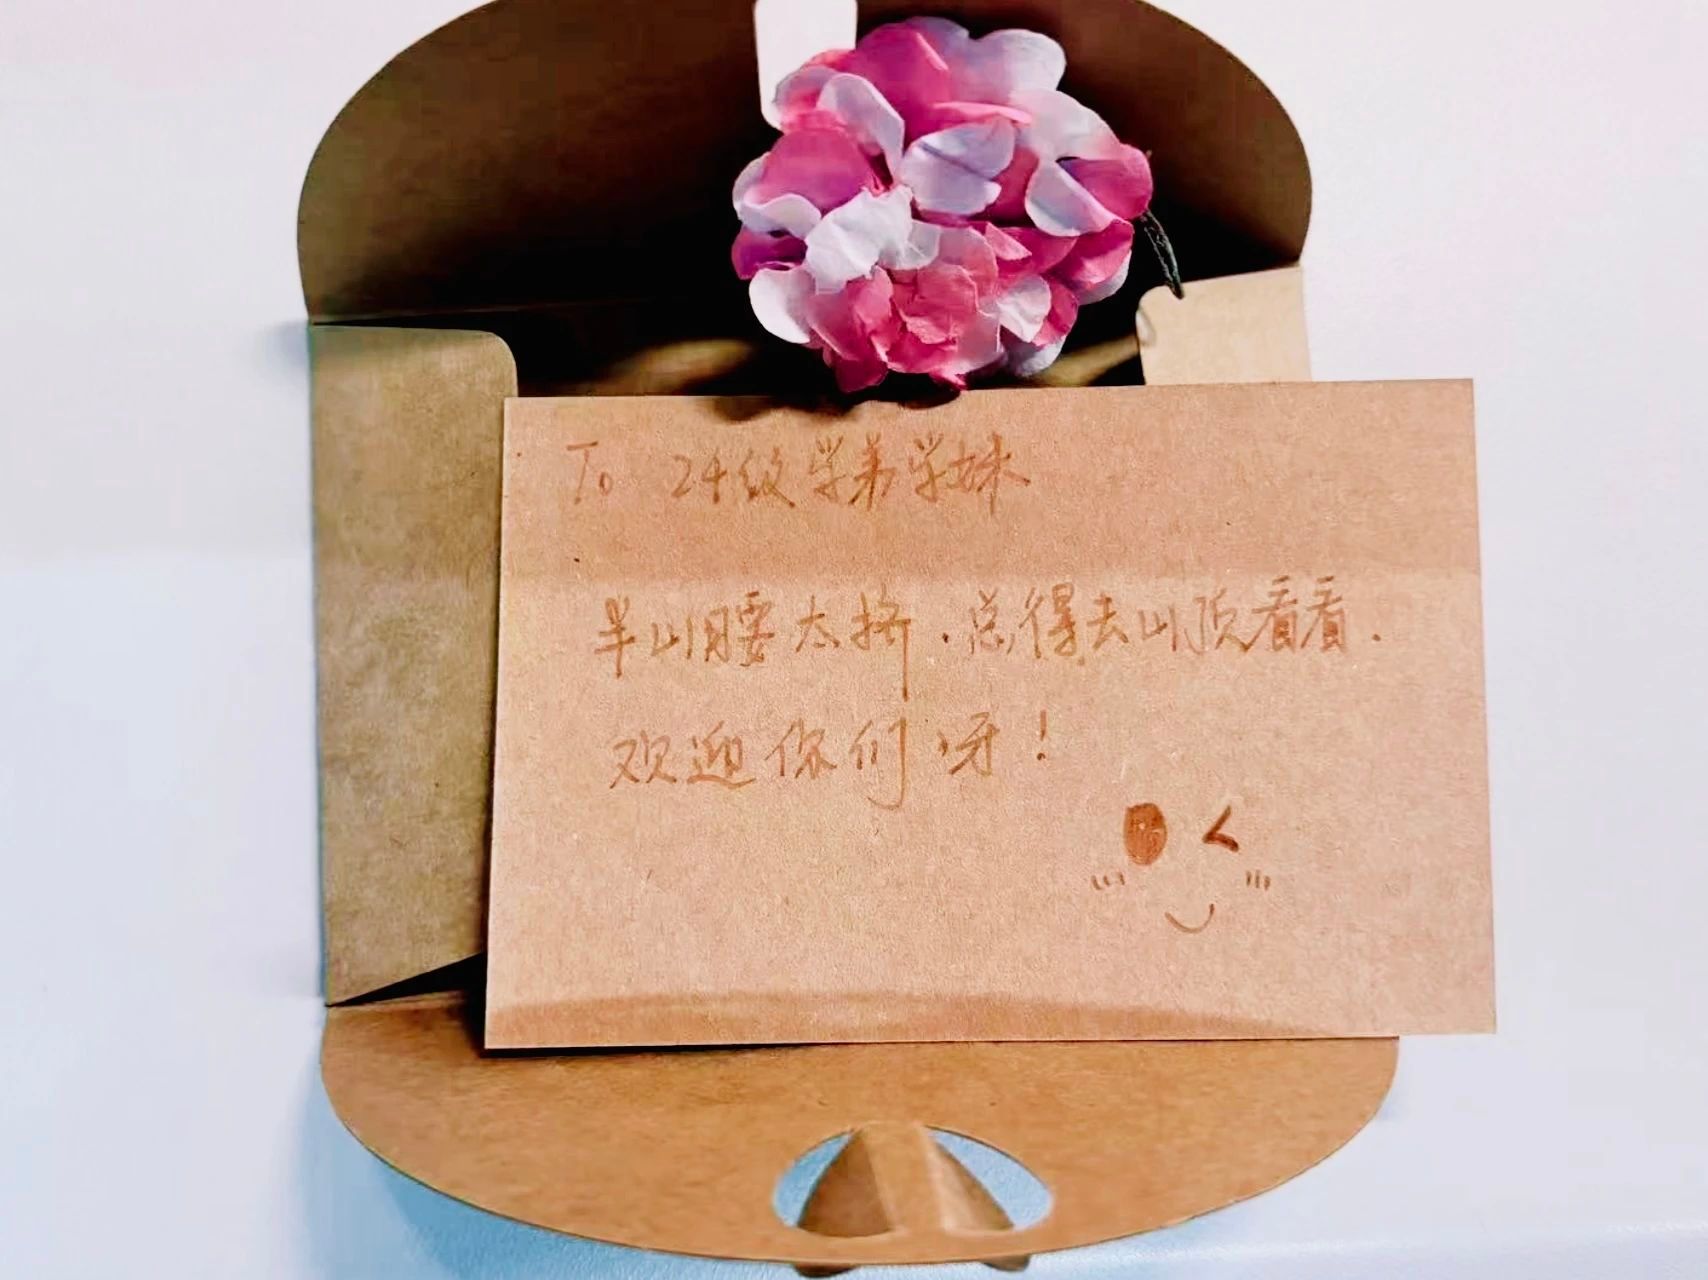 To 24级学弟学妹
半山腰太挤.总得去山顶看看.
欢迎你们呀!